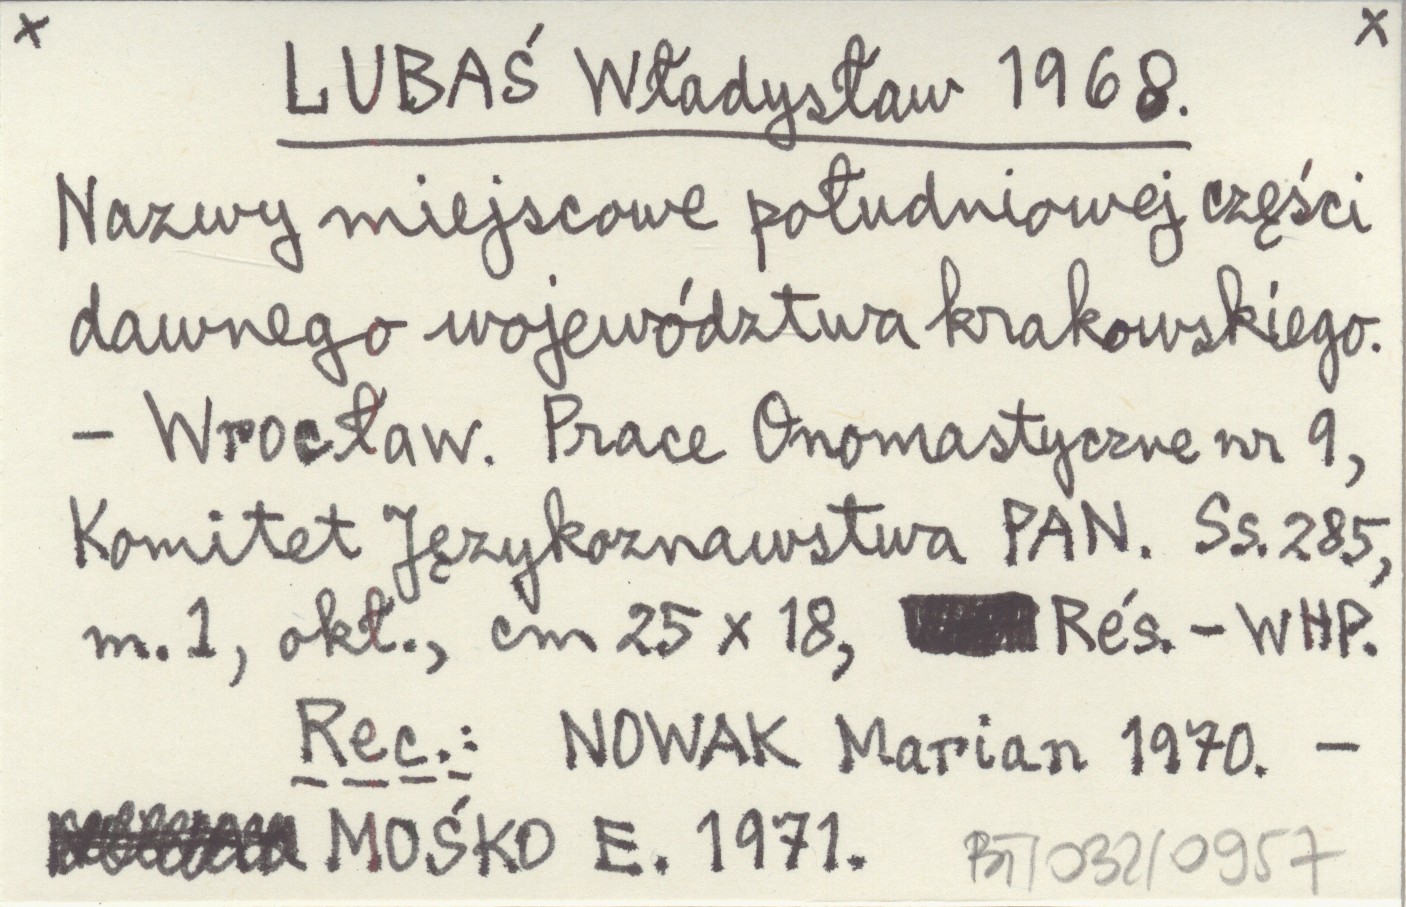 x x
LUBAŚ Władysław 1968.
Nazwy miejscowe południowej części
dawnego województwa krakowskiego.
– Wrocław. Prace Onomastyczne nr 9,
Komitet Językoznawstwa PAN. Ss. 285,
m. 1, okł., cm 25 x 18, Rés. – WHP.
Rec.: NOWAK Marian 1970. –
MOŚKO E. 1971.
BT/032/0957